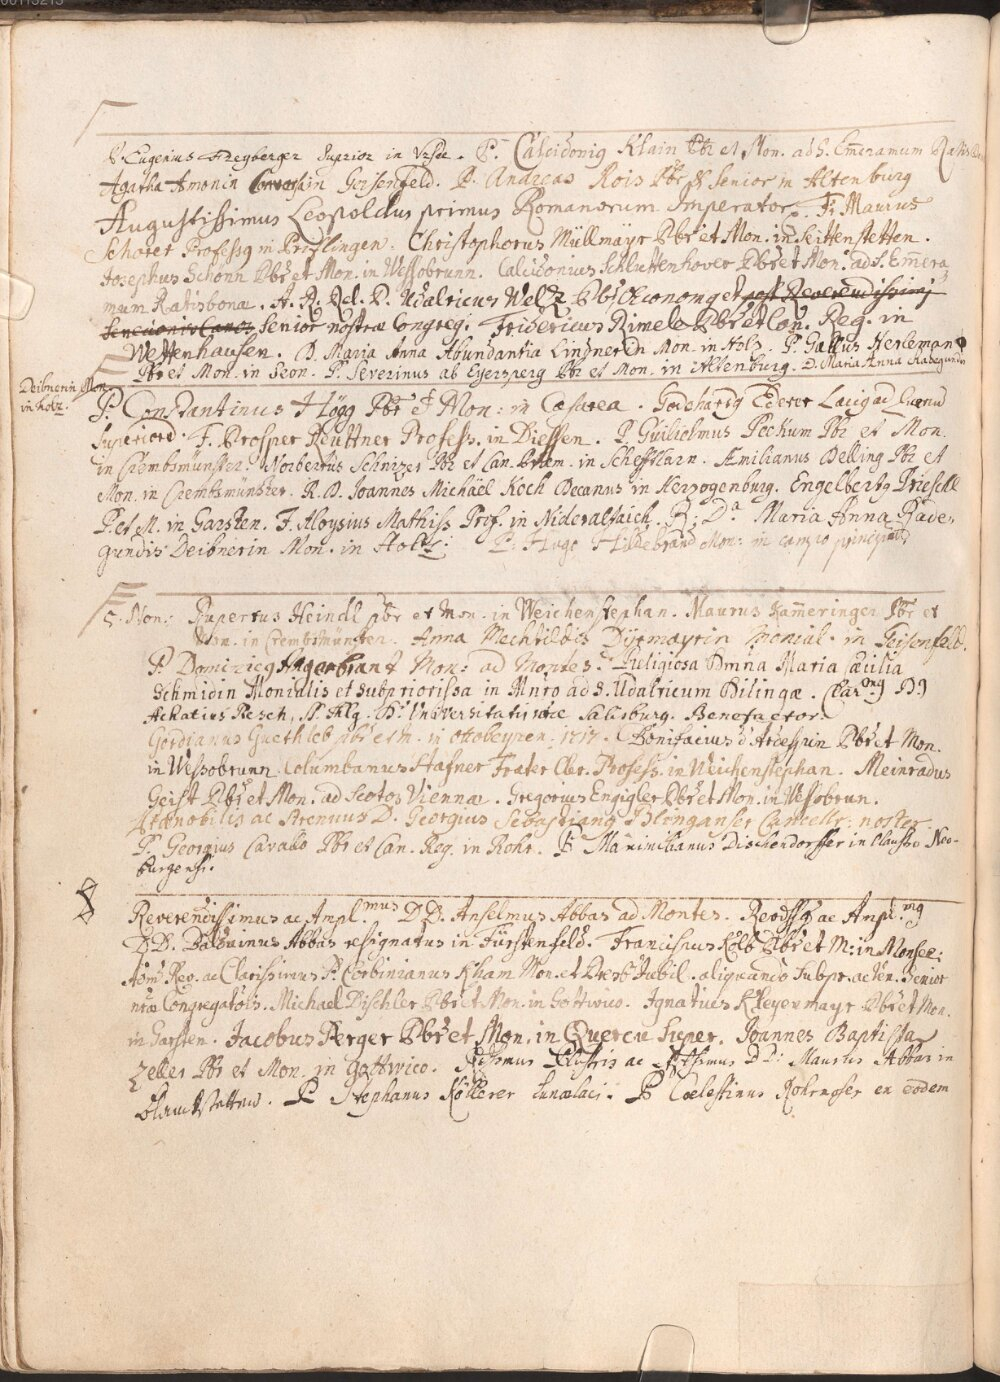 P. Eugenius Dregberger Superior in Ursee. P. Calcidoni9 Klain Pbr et Mon. ad S. Em̄eramum Ratisb.
Agatha Amonin Conversa in Geisenfeld. P. Andreas Rois Pbr & Senior in Altenburg
Augustissimus Leopoldus primus Romanorum Imperator. Fr. Maurus
Schorer Profess9 in Prüflingen. Christophorus Müllmayr Pbr et Mon. in Seittenstetten.
Josephus Schönn Pbr et Mon. in Wessobrunn. Calcidonius Schluttenhover Pbr et Mon. ad S. Em̄era
mum Ratisbonæ. A. R. Rel. P. Udalricus Welz Pbr Œconom9 et post Reverendissimū
Senior nostræ Congreg. Fridericus Rimele Pbr et Can. Reg. in
Wettenhausen. D. Maria Anna Abundantia Lindnerin Mon. in Holz. P. Gallus Herleman
Pbr et Mon. in Seon. P. Severinus ab Eyersperg Pbr et Mon. in Altenburg. D. Maria Anna Radegundis
Deibnerin Mon.
in Holz.
P. Constantinus Högg Pbr & Mon: in Cæsarea. Godehard9 Ederer Laic9 ad
superiorē. F. Prosper Reuttner Profess. in Diessen. P. Guilielmus Peckum Pbr et Mon.
in Crembsmünster. Norbertus Schnizer Pbr et Can. Præm. in Schefftlarn. Æmilianus Delling Pbr et
Mon. in Crembsmünster. R. D. Joannes Michaël Koch Decanus in Herzogenburg. Engelbert9 Driesell
P. et M. in Garsten. F. Aloysius Mathiss Prof. in Nideraltaich. R: D.a Maria Anna Rade-
gundis Deibnerin Mon. in Holz. P. Hugo Hildebrand Mon: in campo principum
5. Non: Rupertus Heindl Pbr et Mon. in Weichenstephan. Maurus Kam̄eringer Pbr et
Mon. in Crembsmünster. Anna Mechtildis Dissmayrin Monial. in Geisenfeld.
P. Dominic9 Mon: ad Montes. Religiosa Dmna Maria Cæcilia
Schmidin Monialis et Subpriorissa in Mnro ad S. Udalricum Dilingæ. Clar.mus D.
Achatius Resch, Universitatis Salisburg. Benefactor.
Gordianus Guethleb Pbr et M. in Ottobeyren. 1717. Bonifacius d'Arcessin Pbr et Mon.
in Wessobrunn. Columbanus Stafner Frater Cler. Profess. in Weichenstephan. Meinradus
Geist Pbr et Mon. ad Scotos Viennæ. Gregorius Engigler Pbr et Mon. in Wessobrun.
Prænobilis ac Strenuus D. Georgius Sebastian9 Plonganser Cancell: noster
P. Georgius Carabo Pbr et Can. Reg. in Rohr. P. Maximilianus Dischendorffer in Claustro Neo-
burgensi.
Reverendissimus ac Ampl.mus DD. Anselmus Abbas ad Montes. Revdss9 ac Ampl.mus
D.D. Balduinus Abbas resignatus in Fürstenfeld. Franciscus Kolb Pbr et M: in Monsee:
Adm. Rev. ac Clarissimus P. Corbinianus Kham Mon. et Presb. Jubil. aliquando Subpr. ac ten. Senior
nræ Congregatōis. Michael Dischler Pbr et Mon. in Gottwico. Ignatius Kleyenmayr Pbr et Mon.
in Garsten. Jacobus Perger Pbr et Mon. in Quercu Super. Joannes Baptista
Zeller Pbr et Mon. in Gottwico. Illustris ac DD: Maurus Abbas in
Blanckstetten. P. Stephanus Köllerer Lunælaci. P. Cœlestinus Rohrmoser en eōdem